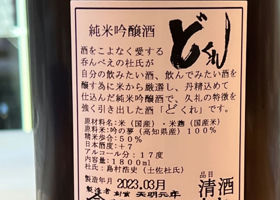 純米吟醸酒
どくれ
酒をこよなく愛する
呑んべえの杜氏が
自分の飲みたい酒、飲んでみたい酒を
醸す為に米から厳選し、丹精込めて
仕込んだ純米吟醸酒で、久礼の特徴を
強く引き出した酒「どくれ」です。
原材料名:米(国産米)・米麹(国産米)
原料米:吟の夢(高知県産)100%
精米歩合:50%
日本酒度:+7
アルコール分:17度
内容量:1800ml
杜氏:島村浩史(土佐杜氏)
製造年月 2023.03月
品目
清酒
製造者 創業 天明元年